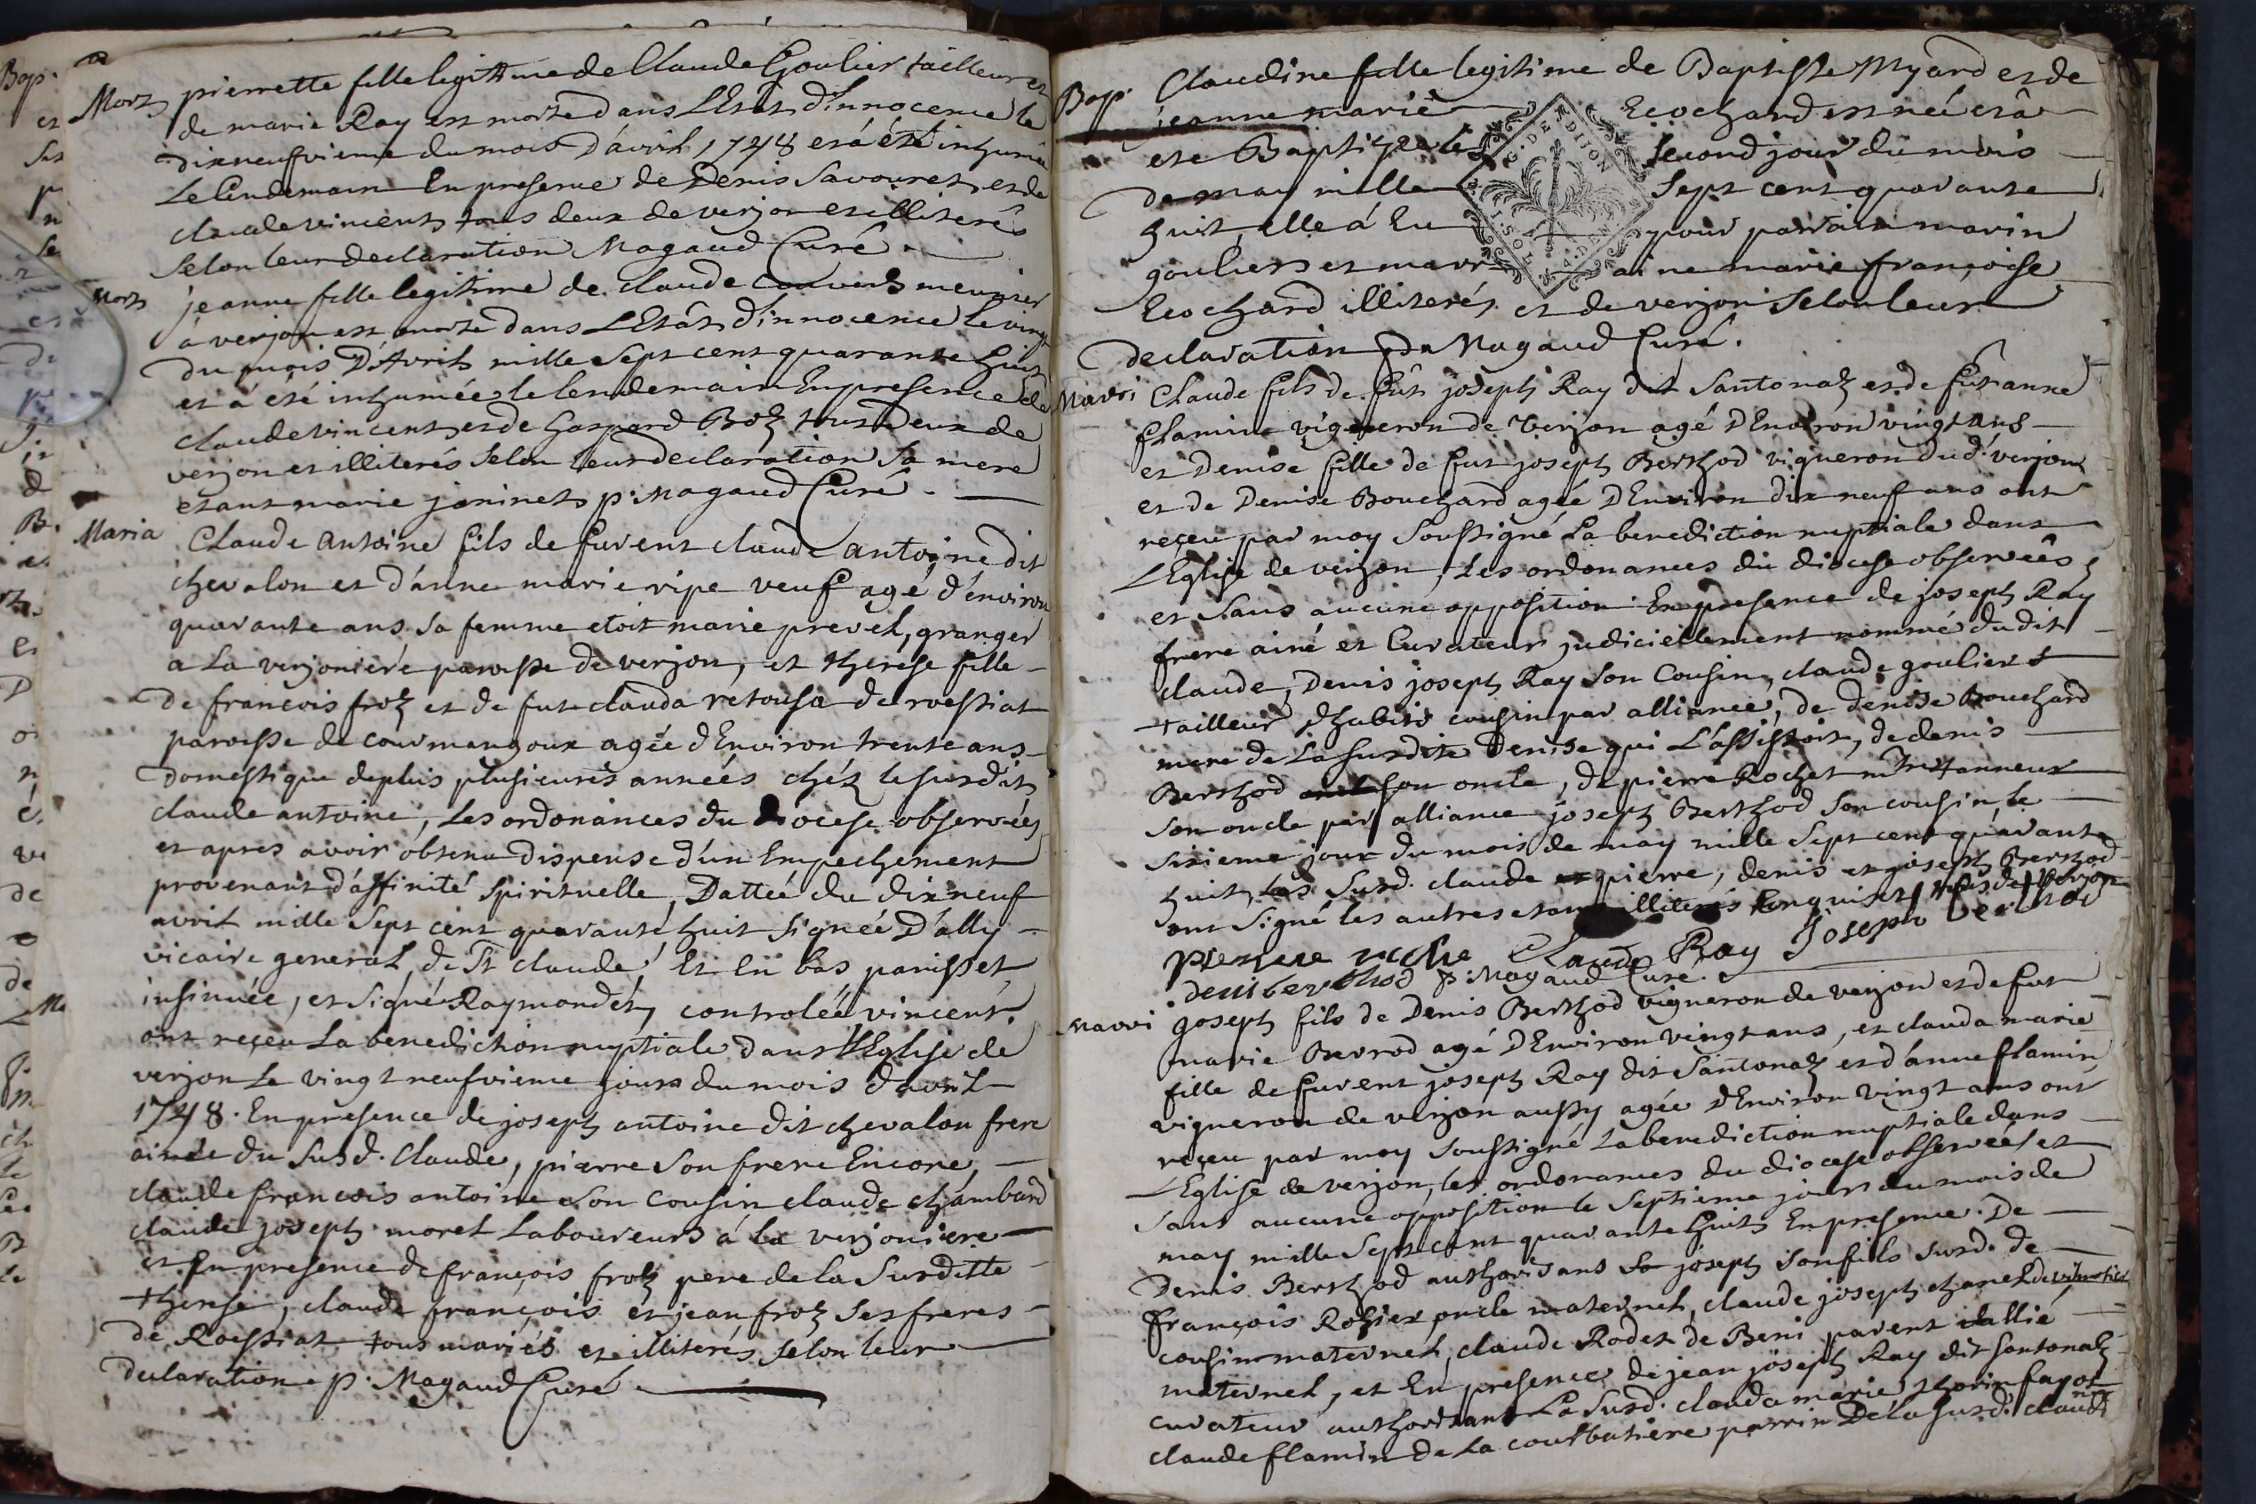 Mort pierrette fille legittime de Claude Goulier tailleur et
de marie Ray est morte dans L'Etat d'Innocence le
dixneufvieme du mois D'avril 1748 et á été inhumée
Le Lendemain En presence de Denis Savouret et de
claude vincent tous deux de verjon et illiterés
selon leur declaration Magaud Curé.
Mort jeanne fille legitime de claude convert meunier
à verjon est morte dans L'Etât d'innocence le vingt
du mois D'Avril mille sept cent quarante huit
et á été inhumée le lendemain En presence de
claude vincent et de Gaspard Boz tous Deux de
verjon et illiterés selon leur declaration sa mere
etant marie janinet p. Magaud Curé.
Maria Claude antoine fils de furent claude antoine dit
chevalon et d'anne marie ripe veuf agé d'environ
quarante ans sa femme etoit marie prevel, granger
a La verjoniere paroisse de verjon, et therese fille
de francois froz et de fut clauda retousa de roissiat
paroisse de courmangoux agée d'Environ trente ans
Domestique depuis plusieures années chéz le susdit
claude antoine, Les ordonances du diocese observées
et apres avoir obtenu dispense d'un Empechement
provenant d'affinité spirituelle, Dattée du dixneuf
avril mille sept cent quarante huit signée D'ally
vicaire general de St claude, Et En bas parisset
insinuée, et signé Raymondet, controlée vincent.
ont reçeu La benediction nuptiale dans l'Eglise de
verjon Le vingt neufvieme jour du mois d'avril
1748. En presence de joseph antoine dit chevalon frere
ainée du susd. Claude, pierre son frere Encore,
claude francois antoine son cousin claude chambard
claude joseph morel Laboureurs á la verjoniere
et En presence de françois froz pere de la susditte
therese, claude françois et jean froz ses freres
de Roissiat tous mariés et illiterés selon leur
declaration p. Magaud Curé.
Bap. Claudine fille legitime de Baptiste Myard et de
jeanne marie Ecochard est née et â
ete Baptizée le second jour du mois
de may mille sept cent quarante
huit, elle á Eu pour parrain marin
goulier et marraine marie françoise
Ecochard illiterés et de verjon selon leur
declaration p. Magaud Curé.
G. DE DIJON
Marri Claude fils de fut joseph Ray dit Santonaz et de fut anne
flamin vigneron de Verjon agé D'Environ vingt ans
et Denise fille de fut joseph Berthod vigneron dud. verjon
et de Denise Bouchard agée D'Environ dix neuf ans ont
reçeu par moy soussigné La benediction nuptiale dans
L'Eglise de verjon, Les ordonances du diocese observées
et sans aucune opposition En presence de joseph Ray
frere ainé et Curateur judiciellement nommé dudit
claude, Denis joseph Ray son Cousin, claude goulier
tailleur d'habits cousin par alliance, de denise Bouchard
mere de La susdite Denise qui L'assistoit, de denis
Berthod son oncle, de pierre Rochet tanneur
son oncle par alliance joseph Berthod son cousin, le
sixieme jour du mois de may mille sept cent quarante
huit, Les susd. claude pierre, denis et joseph Berthod
ont signé les autres etant illiterés Enquis
Claude Ray Joseph berthod
denis berthod p. Magaud Curé.
Marri joseph fils de Denis Berthod vigneron de verjon et de fut
marie Bevrod agé D'Environ vingt ans, et clauda marie
fille de furent joseph Ray dit Santonaz et d'anne flamin
vigneron de verjon aussy agée D'Environ vingt ans ont
reçeu par moy soussigné La benediction nuptiale dans
L'Eglise de verjon, les ordonances du diocese observées et
sans aucune opposition le septieme jour du mois de
may mille sept cent quarante huit En presence De
Denis Berthod authorisant joseph son fils susd. de
François Rozier oncle maternel, claude joseph chanel
cousin maternel, claude Rodet de Beni parent allié
maternel, et En presence de jean joseph Ray dit Santonaz
curateur authorisant La susd. clauda marie
claude flamin de La courbatiere parrin De la susd.